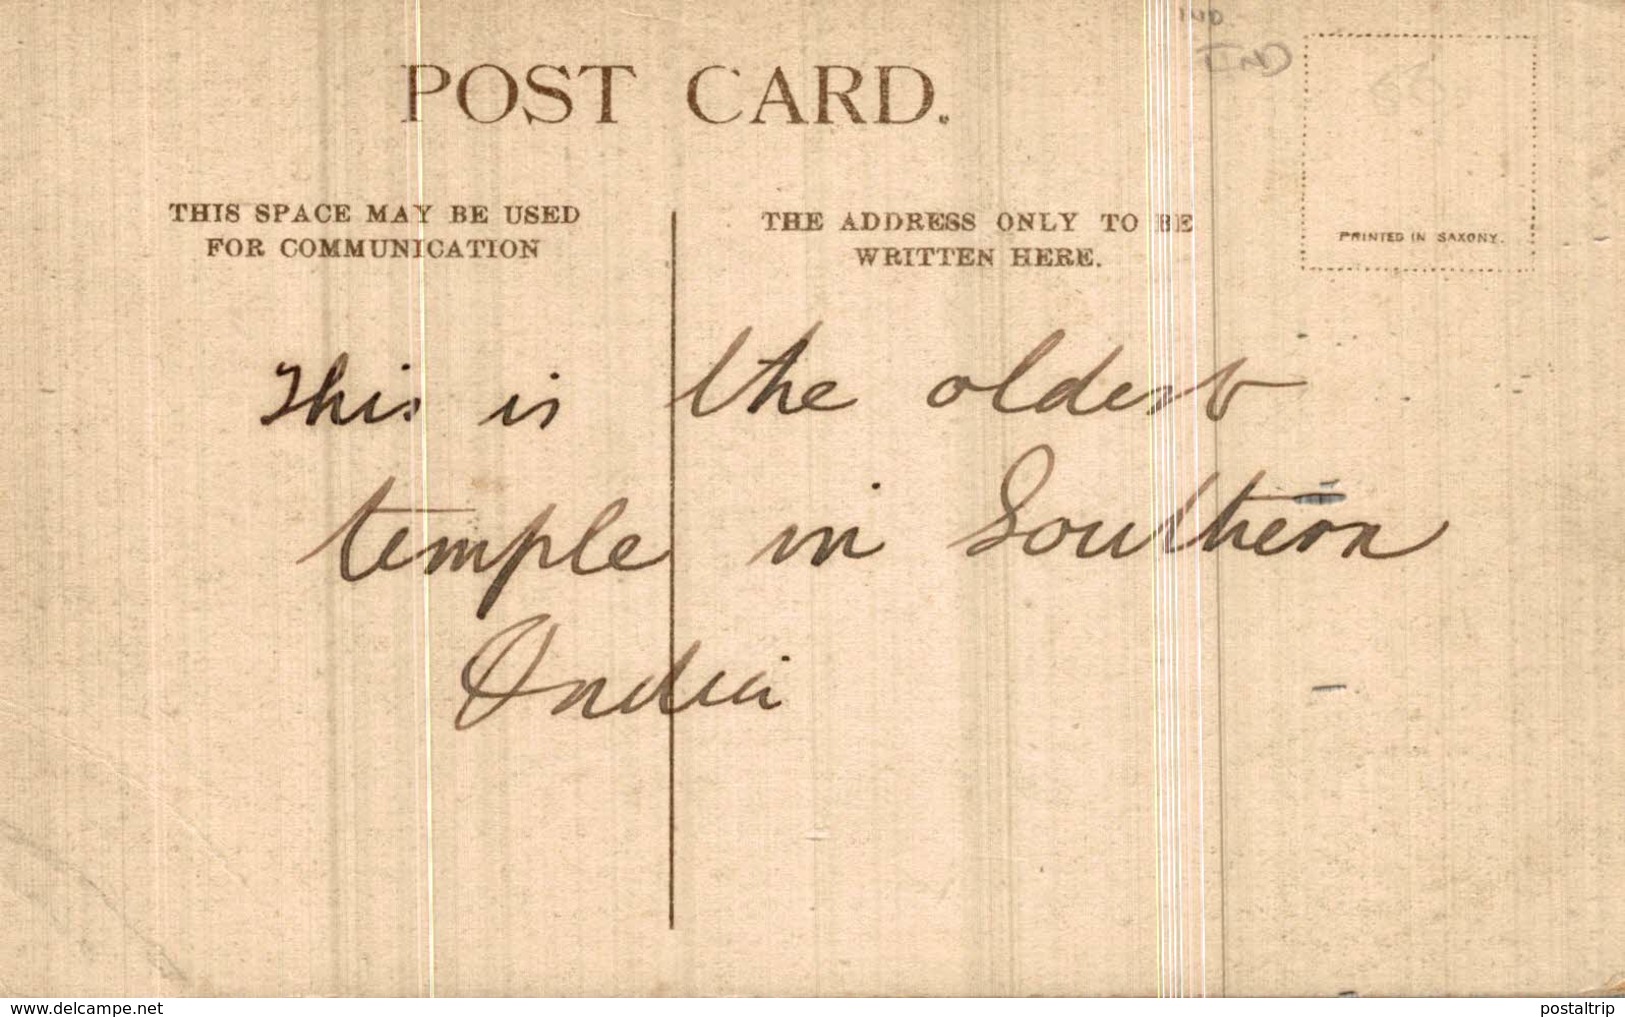 POST CARD.
THIS SPACE MAY BE USED
FOR COMMUNICATION
THE ADDRESS ONLY TO BE
WRITTEN HERE.
PRINTED IN SAXONY.
This is the oldest
temple in Southern
India
www.delcampe.net
postaltrip